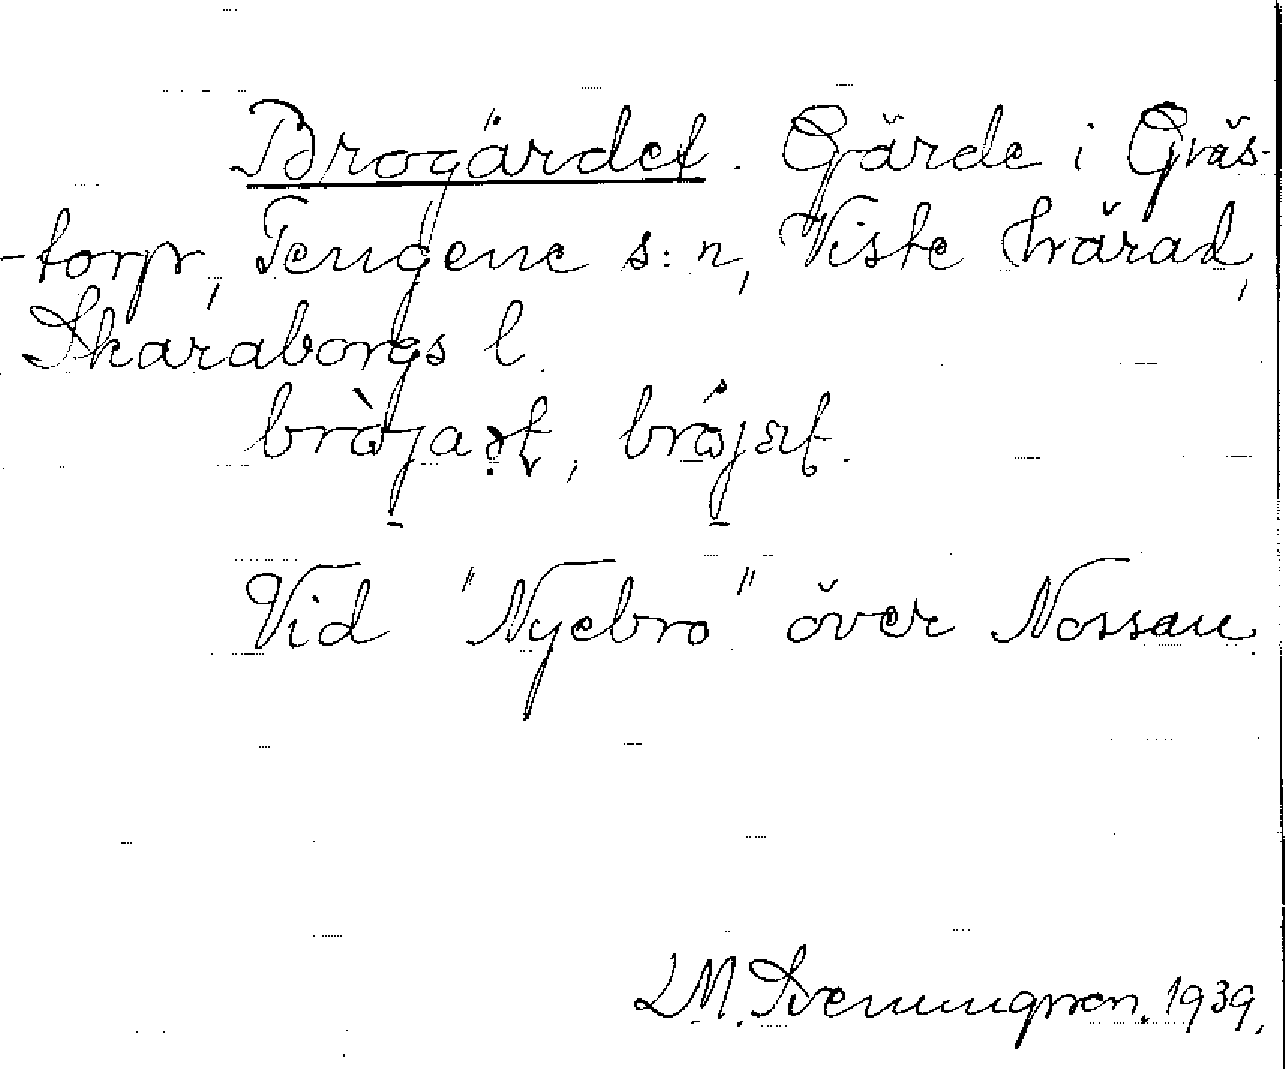 Brogärdet. Gärde i Gräs-
-torp, Tengene s:n, Viste härad,
Skaraborgs l.
Vid "Nyebro" över Nossan.
LM. Svenungsson. 1939.